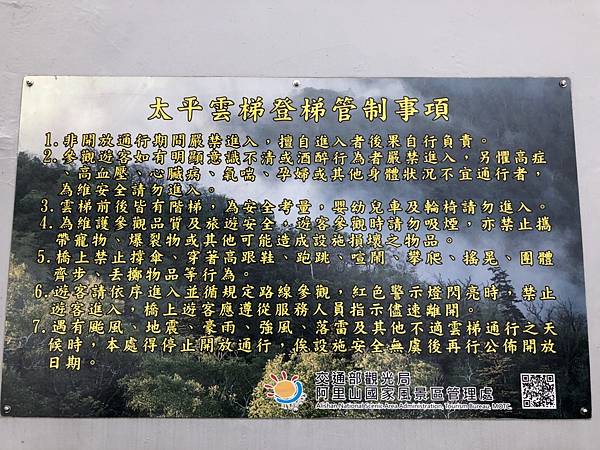 太平雲梯登梯管制事項
1.非開放通行期間嚴禁進入，擅自進入者後果自行負責。
2.參觀遊客如有明顯意識不清或酒醉行為者嚴禁進入，另懼高症
、高血壓、心臟病、氣喘、孕婦或其他身體狀況不宜通行者，
為維安全請勿進入。
3.雲梯前後皆有階梯，為安全考量，嬰幼兒車及輪椅請勿進入。
4.為維護參觀品質及旅遊安全，遊客參觀時請勿吸煙，亦禁止攜
帶寵物、爆裂物或其他可能造成設施損壞之物品。
5.橋上禁止撐傘、穿著高跟鞋、跑跳、喧鬧、攀爬、搖晃、團體
齊步、丟擲物品等行為。
6.遊客請依序進入並循規定路線參觀，紅色警示燈閃亮時，禁止
遊客進入，橋上遊客應遵從服務人員指示儘速離開。
7.遇有颱風、地震、豪雨、強風、落雷及其他不適雲梯通行之天
候時，本處得停止開放通行，俟設施安全無虞後再行公佈開放
日期。
交通部觀光局
阿里山國家風景區管理處
Alishan National Scenic Area Administration, Tourism Bureau, MOTC.